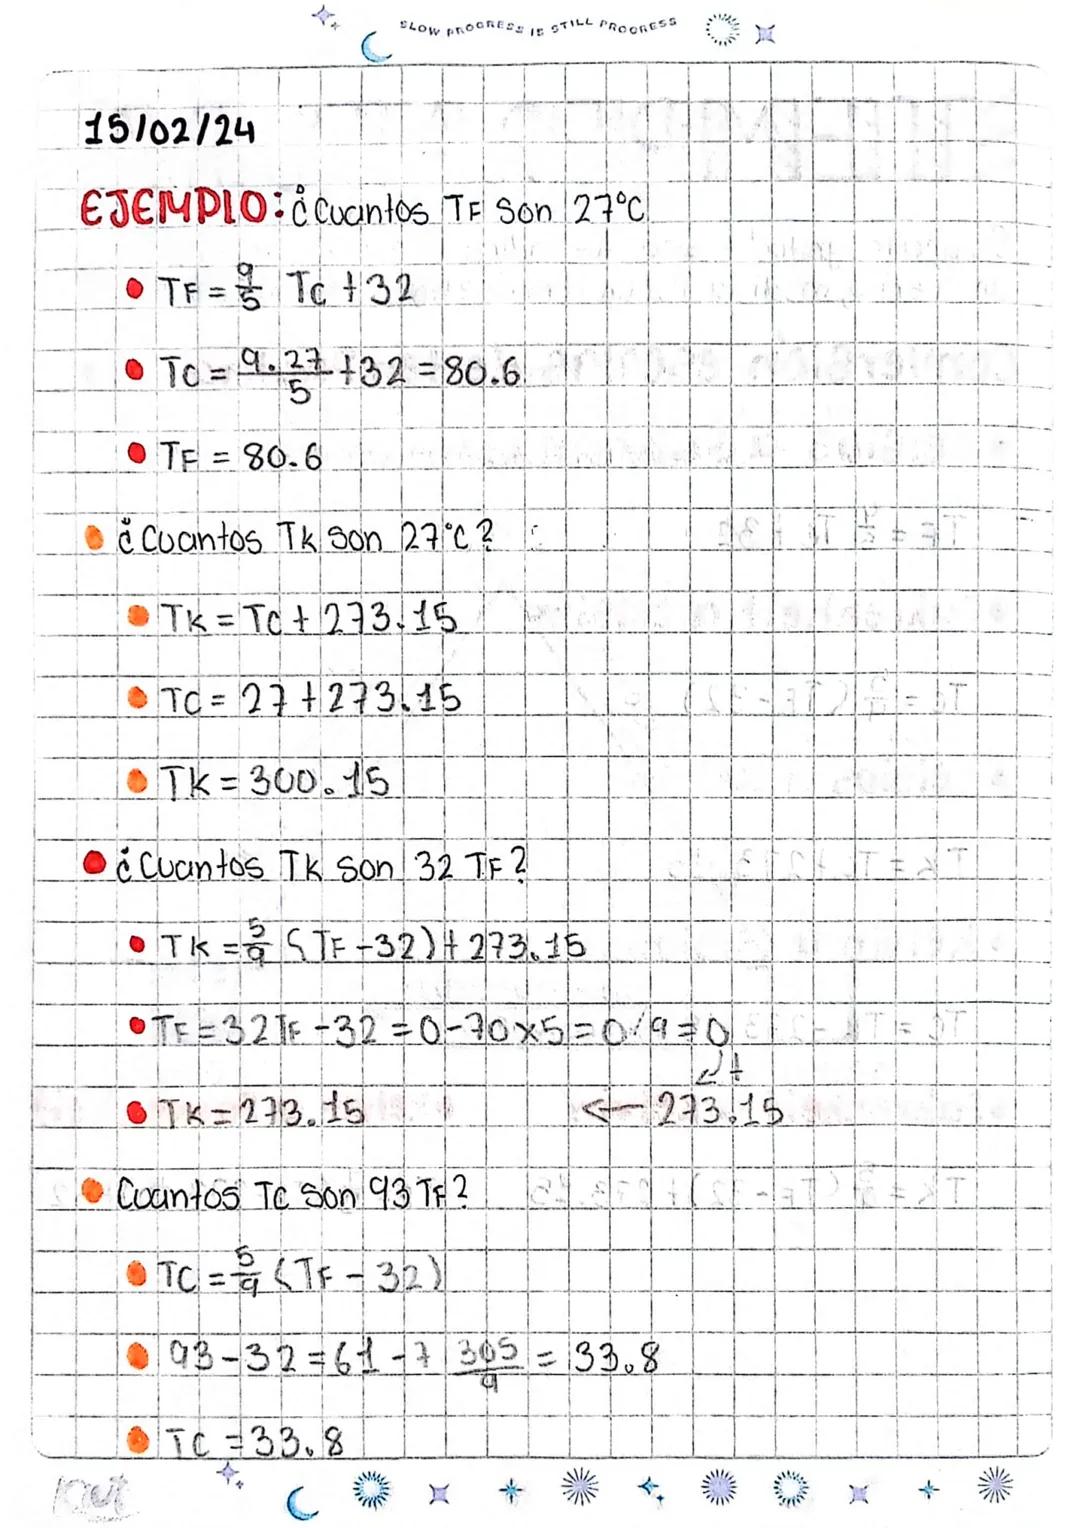 SLOW PROGRESS IS STILL PROGRESS
15/02/24
EJEMPLO: ¿Cuantos TF Son 27°C
• TF = 9/5 Tc + 32
• TC = 9.27/5 + 32 = 80.6
• TF = 80.6
• ¿Cuantos Tk Son 27°C?
• TK = Tc + 273.15
• TC = 27 + 273.15
• TK = 300.15
• ¿Cuantos Tk Son 32 TF?
• TK = 5/9 (TF - 32) + 273.15
• TF = 32 TF - 32 = 0 -70 x 5 = 0/9 = 0
↙ +
• TK = 273.15 ← 273.15
• Cuantos Tc Son 93 TF?
• TC = 5/9 (TF - 32)
• 93 - 32 = 61 -7 305/9 = 33.8
• TC = 33.8